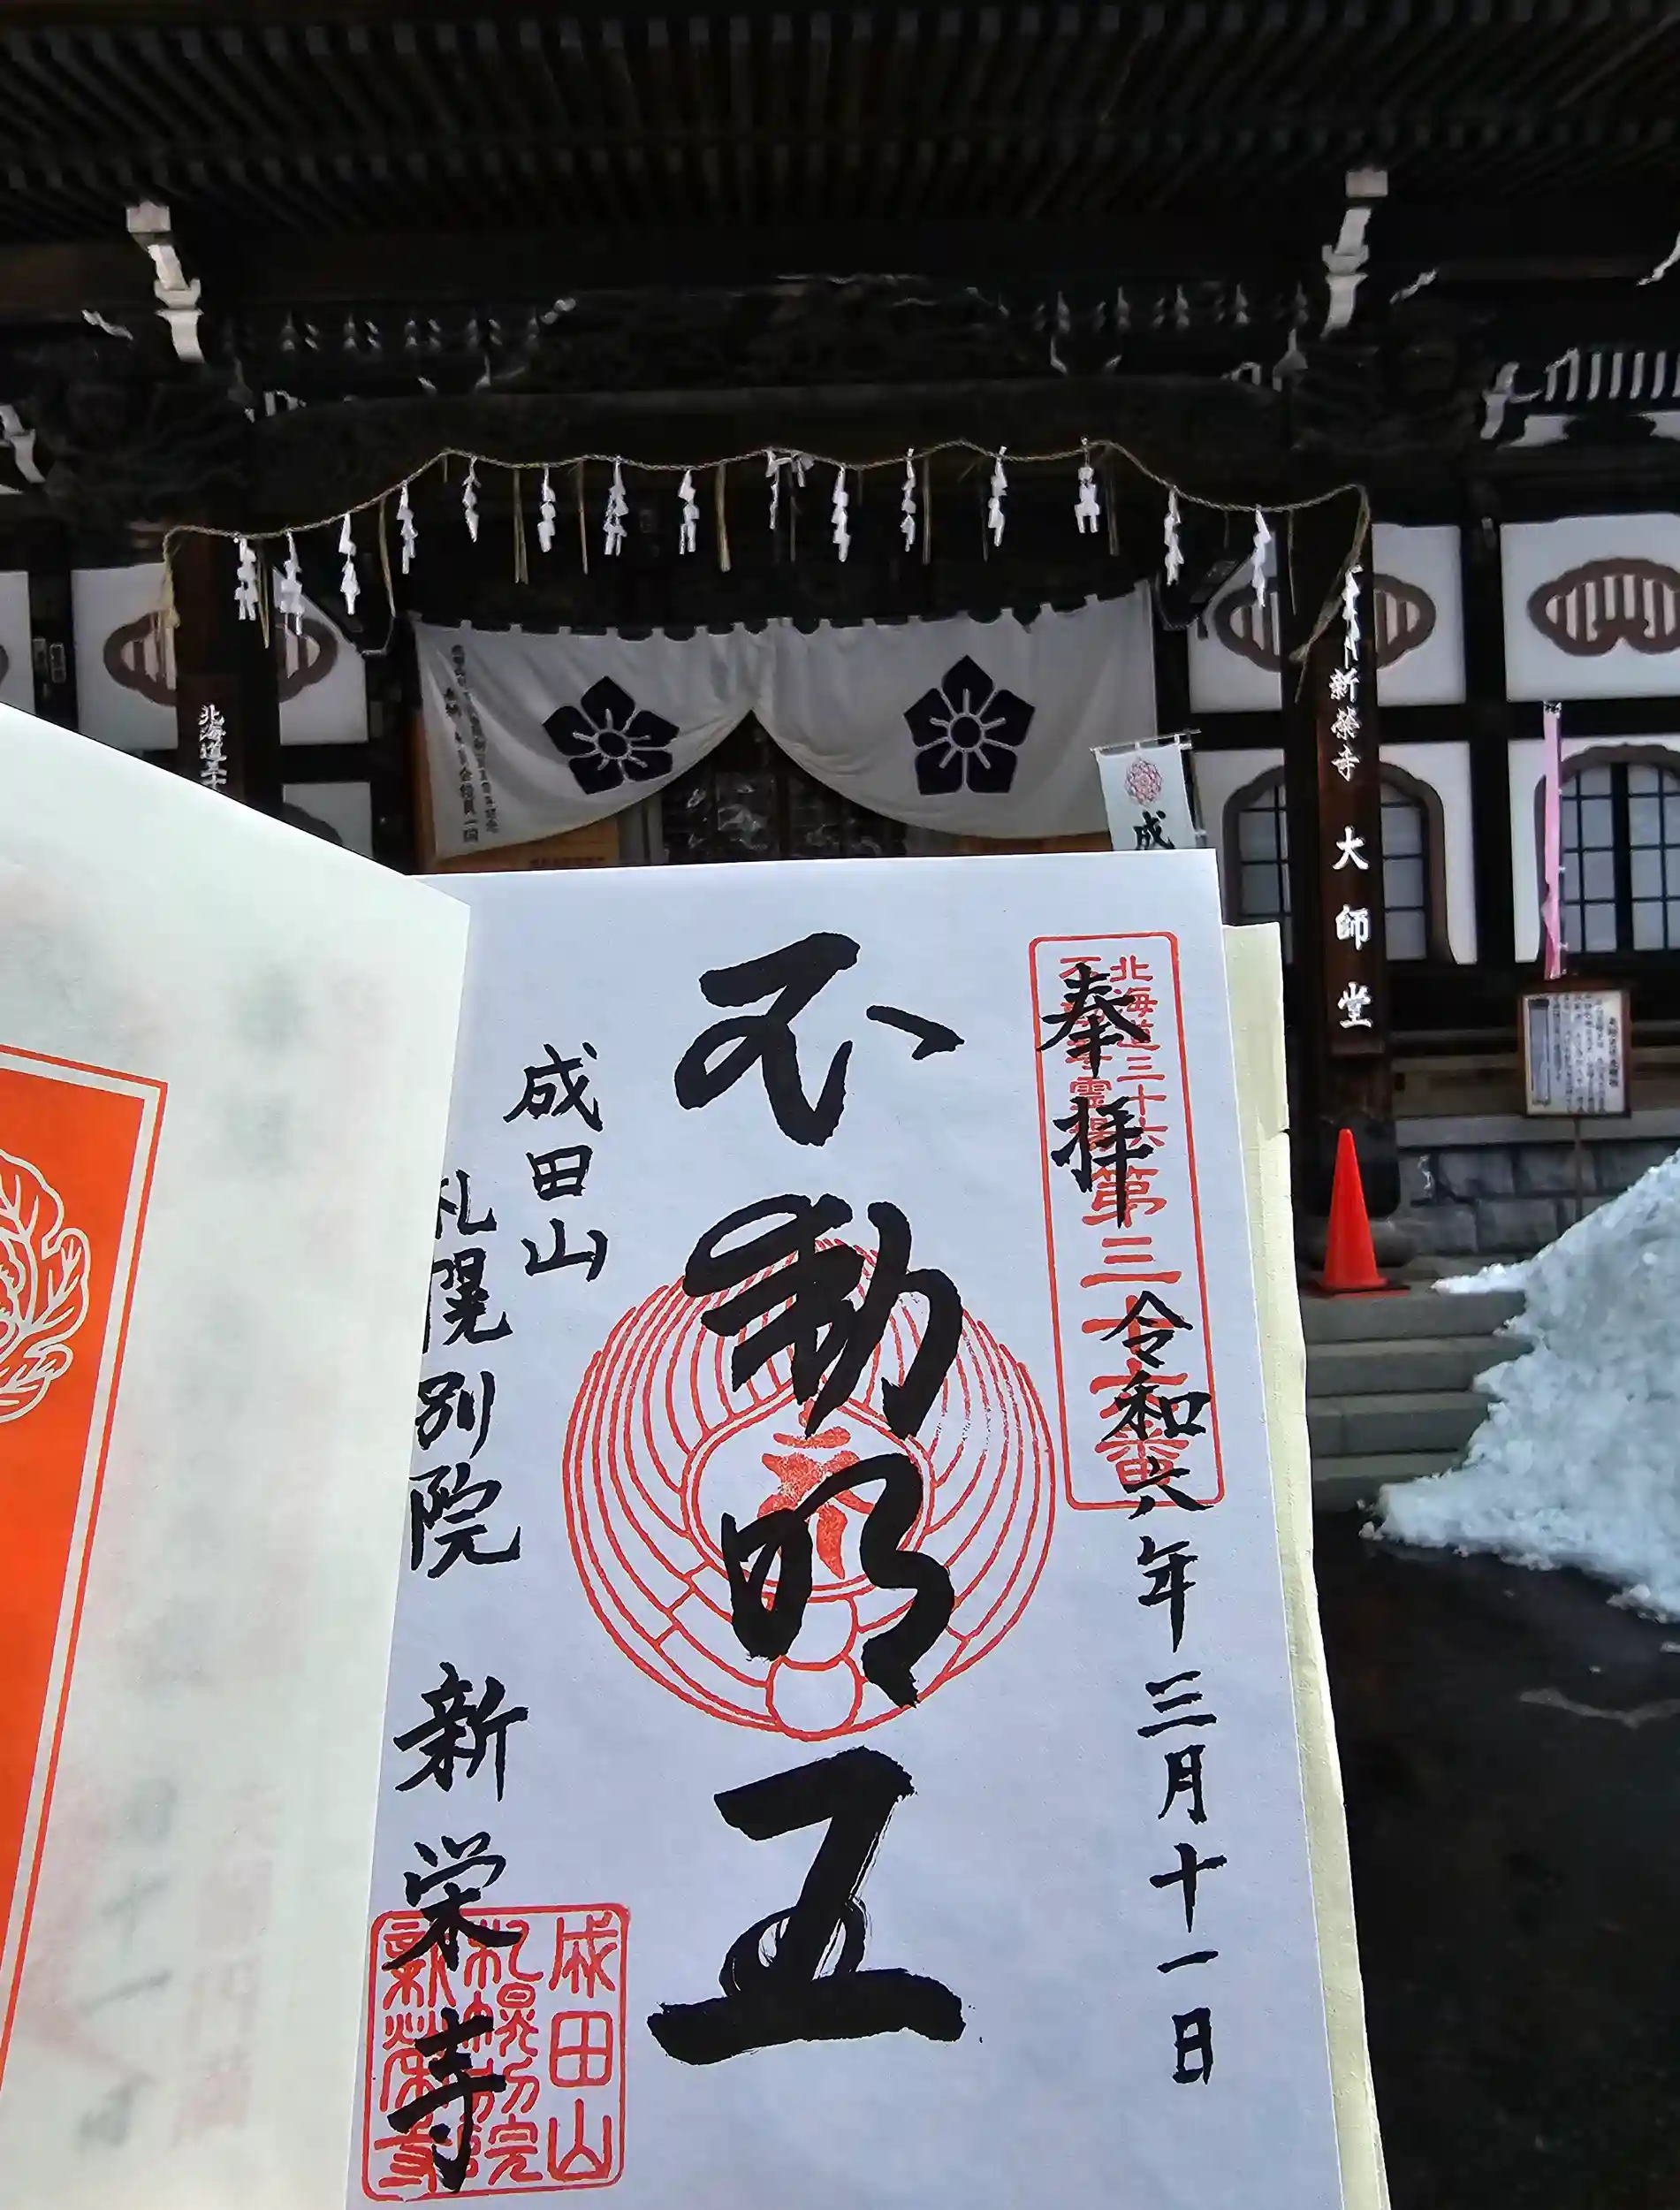 北海道三十
新榮寺 大師堂
成
奉拝
北海道三十六
不動尊霊場
第三十五番
令和六年三月十一日
不動明王
成田山
札幌別院 新栄寺
成田山
札幌別院
新榮寺